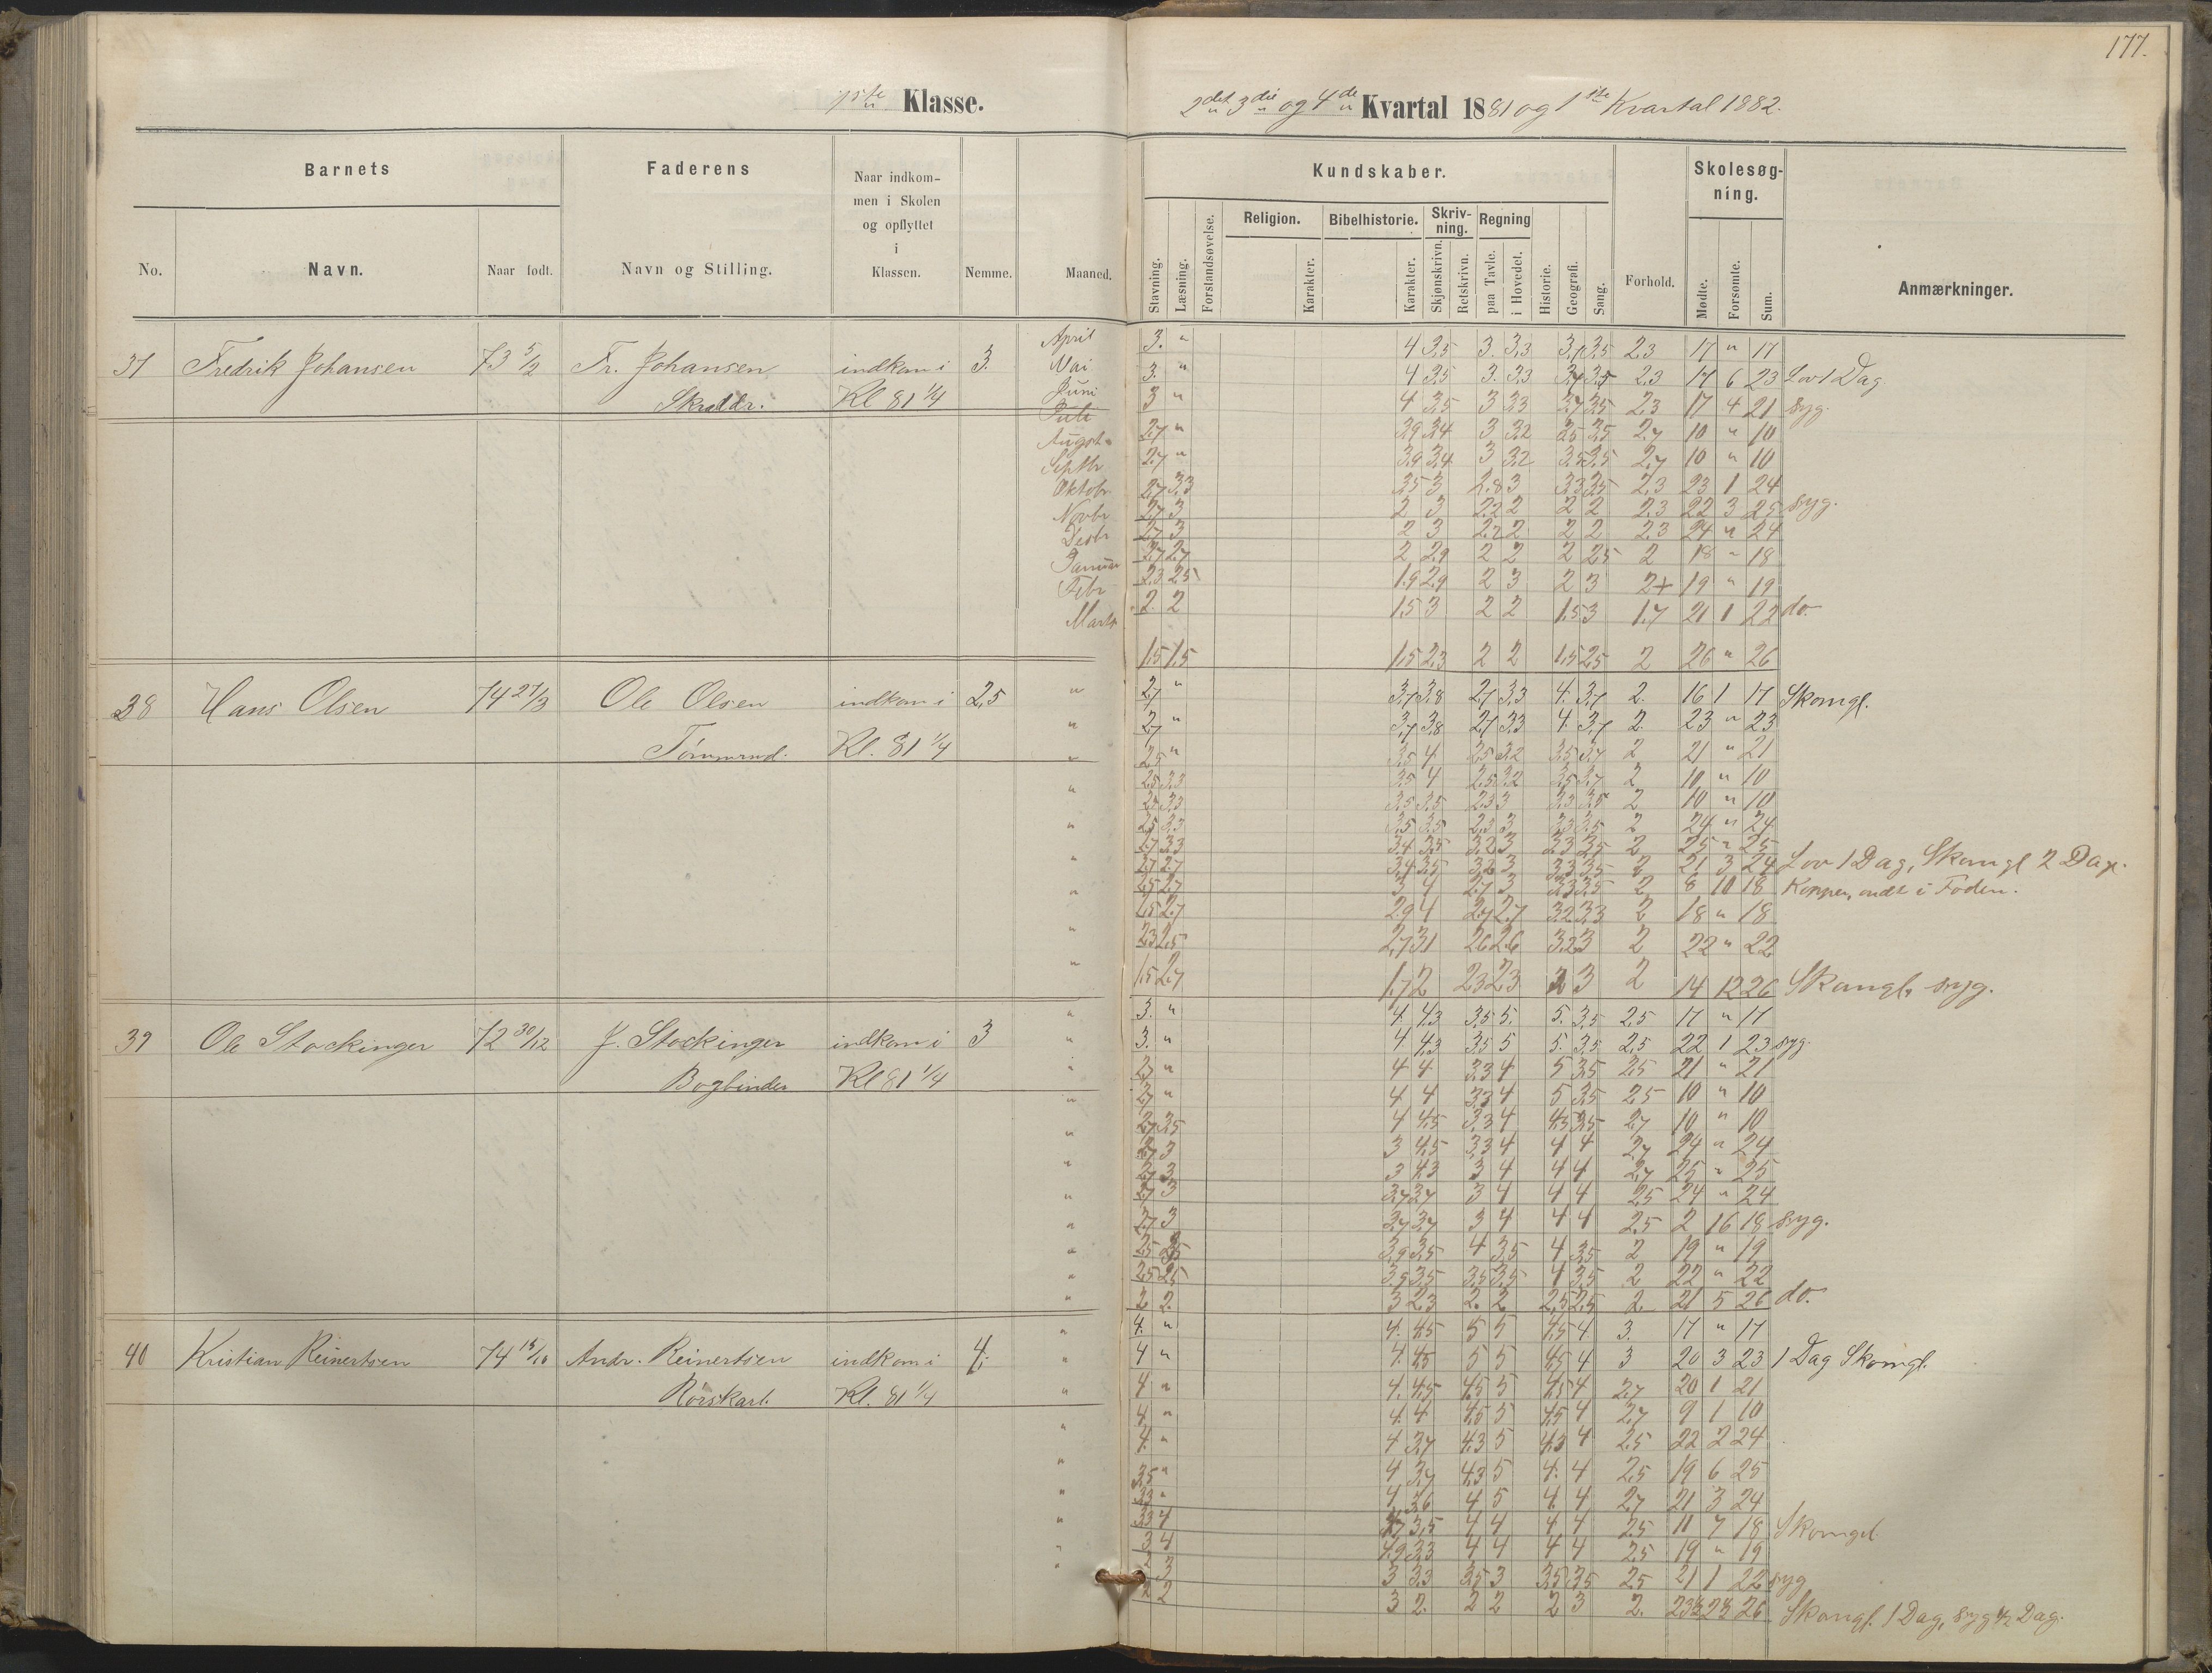 177.
1ste Klasse.
2det 3die og 4de Kvartal 1881 og 1ste Kvartal 1882.
Barnets
Faderens
Naar indkom-
men i Skolen
og opflyttet
i
Klassen.
No.
Navn.
Naar født.
Navn og Stilling.
Nemme.
Maaned.
Kundskaber.
Skolesøg-
ning.
Religion.
Bibelhistorie.
Skriv-
ning.
Regning
Stavning.
Læsning.
Forstandsøvelse.
Karakter.
Karakter.
Skjønskrivn.
Retskrivn.
paa Tavle.
i Hovedet.
Historie.
Geografi.
Sang.
Forhold.
Mødte.
Forsømte.
Sum.
Anmærkninger.
37 Fredrik Johansen 73 5/2 Fr. Johansen indkom i 3.
Skrædr. Kl 81 1/4
April 3. " 4 3,5 3. 3,3 3,7 3,5 2,3 17 " 17
Mai 3. " 4 3,5 3. 3,3 3,7 3,5 2,3 17 6 23 Lov 1 Dag
Juni 3 " 4 3,5 3 3,3 3,7 3,5 2,3 17 4 21 syg.
Juli 2,7 " 3,9 3,4 3 3,2 3,5 3,5 2,7 10 " 10
Augst 2,7 " 3,9 3,4 3 3,2 3,5 3,5 2,7 10 " 10
Septbr 2,7 3,3 3,5 3 2,8 3 3,3 3,5 2,3 23 1 24
Oktobr 2,7 3 2 3 2,2 2 2 2 2,3 22 3 25 syg.
Novbr 2,7 3 2 3 2,2 2 2 2 2,3 24 " 24
Desbr 2,7 2,7 2 2,9 2 2 2 2,5 2 18 " 18
Januar 2,3 2,5 1,9 2,9 2 3 2 3 2+ 19 " 19
Febr 2. 2 1,5 3 2 2 1,5 3 1,7 21 1 22 do.
Marts 1,5 1,5 1,5 2,3 2 2 1,5 2,5 2 26 " 26
38 Hans Olsen 74 27/3 Ole Olsen indkom i 2,5
Tømmrmd. Kl. 81 1/4
2,7 " 3,7 3,8 2,7 3,3 4. 3,7 2. 16 1 17 Skomgl.
2,7 " 3,7 3,8 2,7 3,3 4. 3,7 2. 23 " 23
2,5 " 3,5 4 2,5 3,2 3,5 3,7 2 21 " 21
2,5 3,3 3,5 4 2,5 3,2 3,5 3,7 2 10 " 10
2,5 3,3 3,5 3,5 2,3 3 3,3 3,5 2 10 " 10
2,5 3,3 3,5 3,5 2,3 3 3,3 3,5 2 24 " 24
2,7 3,3 3,4 3,5 3,2 3 3,3 3,5 2 25 " 25
2,7 2,7 3,4 3,5 3,2 3 3,3 3,5 2 21 3 24 Lov 1 Dag, Skomgl 2 Dage.
2,5 2,7 3 4 2,7 3 3,3 3,5 2 8 10 18 Kopper, ondt i Foden.
2,5 2,7 2,9 4 2,7 2,7 3,2 3,3 2 18 " 18
2,3 2,5 2,7 3,1 2,6 2,6 3,2 3 2 22 " 22
1,5 2,7 1,7 2 2,3 2,3 2 3 2 14 12 26 Skomgl, syg.
39 Ole Stockinger 72 30/12 J. Stockinger indkom i 3
Bogbinder Kl 81 1/4
3. " 4. 4,3 3,5 5. 5. 3,5 2,5 17 " 17
3. " 4. 4,3 3,5 5 5. 3,5 2,5 22 1 23 syg.
2,7 " 4 4 3,3 4 5 3,5 2,5 21 " 21
2,7 " 4 4 3,3 4 5 3,5 2,5 10 " 10
2,7 3,5 4 4,5 3,3 4 4,3 3,5 2,7 10 " 10
2,7 3 3 4,5 3,3 4 4 4 2,7 24 " 24
2,7 3 3 4,3 3 4 4 4 2,7 25 " 25
2,7 3 3,7 3,7 3 4 4 4 2,5 24 " 24
2,7 3 3,7 3,7 3 4 4 4 2,5 2 16 18 syg.
2,5 2,5 3,9 3,5 4 3,5 4 3,5 2 19 " 19
2,5 2,5 3,9 3,5 3,5 3,5 4 3,5 2 22 " 22
2 2. 3 2,3 2. 2. 2,5 2,5 2. 21 5 26 do.
40 Kristian Reinertsen 74 Andr. Reinertsen indkom i 4.
Rørskarl. Kl. 81 1/4
4. " 4. 4,5 5 5 4,5 4. 3. 17 " 17
4 " 4. 4,5 5 5 4,5 4 3 20 3 23 1 Dag Skomgl.
4 " 4. 4,5 4,5 5 4,5 4 2,7 20 1 21
4 " 4. 4 4,5 5 4,5 4 2,7 9 1 10
4. " 4 3,7 4,3 5 4,3 4 2,5 22 2 24
3,5 " 4 3,7 4,3 5 4. 4 2,5 19 6 25
3,3 " 4 3,6 4 5 4. 4 2,7 21 3 24
3,3 4 3,5 4 4 4 4 2,5 11 7 18 Skomgl
3 4 3,3 4 4 4 4 2,5 19 " 19
2 3 3 3,3 3,5 3 3,5 3,5 2,5 21 1 22 syg
2 2 3 2. 2 2 2 3 2. 23½ 2½ 26 Skomgl. 1 Dag, syg 1½ Dag.